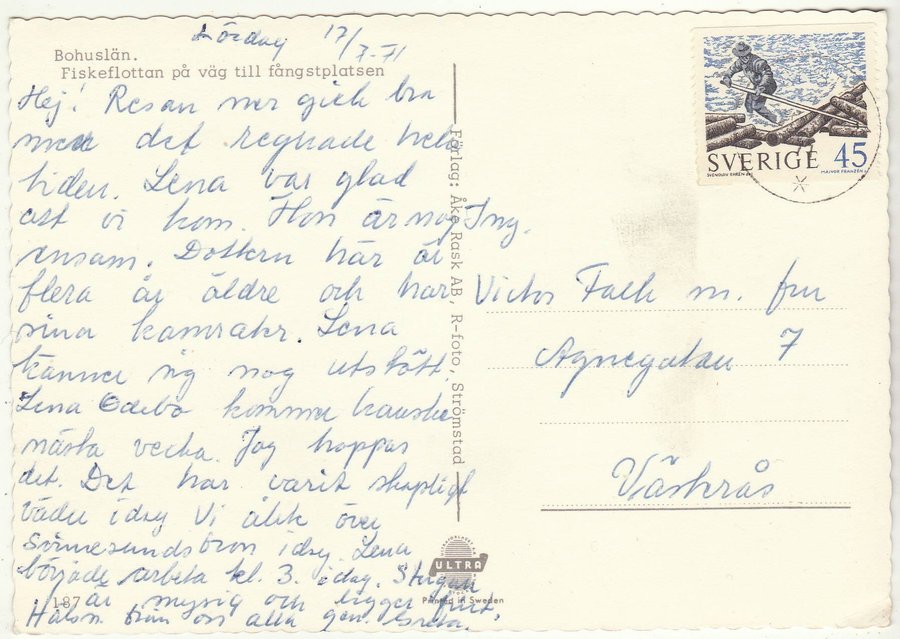 Lördag 17/7-71
Bohuslän.
Fiskeflottan på väg till fångstplatsen
Hej! Resan ner gick bra
men det regnade hela
tiden. Lena var glad
att vi kom. Hon är nog
ensam. Dottern här är
flera år äldre och har
sina kamrater. Lena
känner sig nog utstött.
Lena Edebo kommer kanske
nästa vecka. Jag hoppas
det. Det har varit skapligt
väder idag Vi åkte över
Svinesundsbron idag. Lena
började arbeta kl. 3. idag. Stugan
är mysig och ligger fint.
Hälsn från oss alla gm. Greta.
187
Förlag: Åke Rask AB, R-foto, Strömstad
ULTRA
Printed in Sweden
SVERIGE 45
MAJVOR FRANZÉN
Ing.
Victor Falk m. fru
Agnegatan 7
Västerås